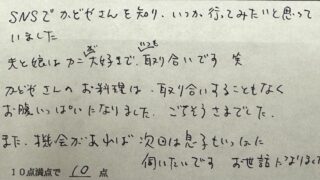 SNSで かどぜさんを知り、いつか行ってみたいと思って
いました
夫と娘はカニが大好きで、いつも取り合いです 笑
かどぜさんのお料理は、取り合いすることもなく
お腹いっぱいになりました。ごちそうさまでした。
また、機会があれば 次回は息子もいっしょに
伺いたいです お世話になりました
10点満点で 10 点